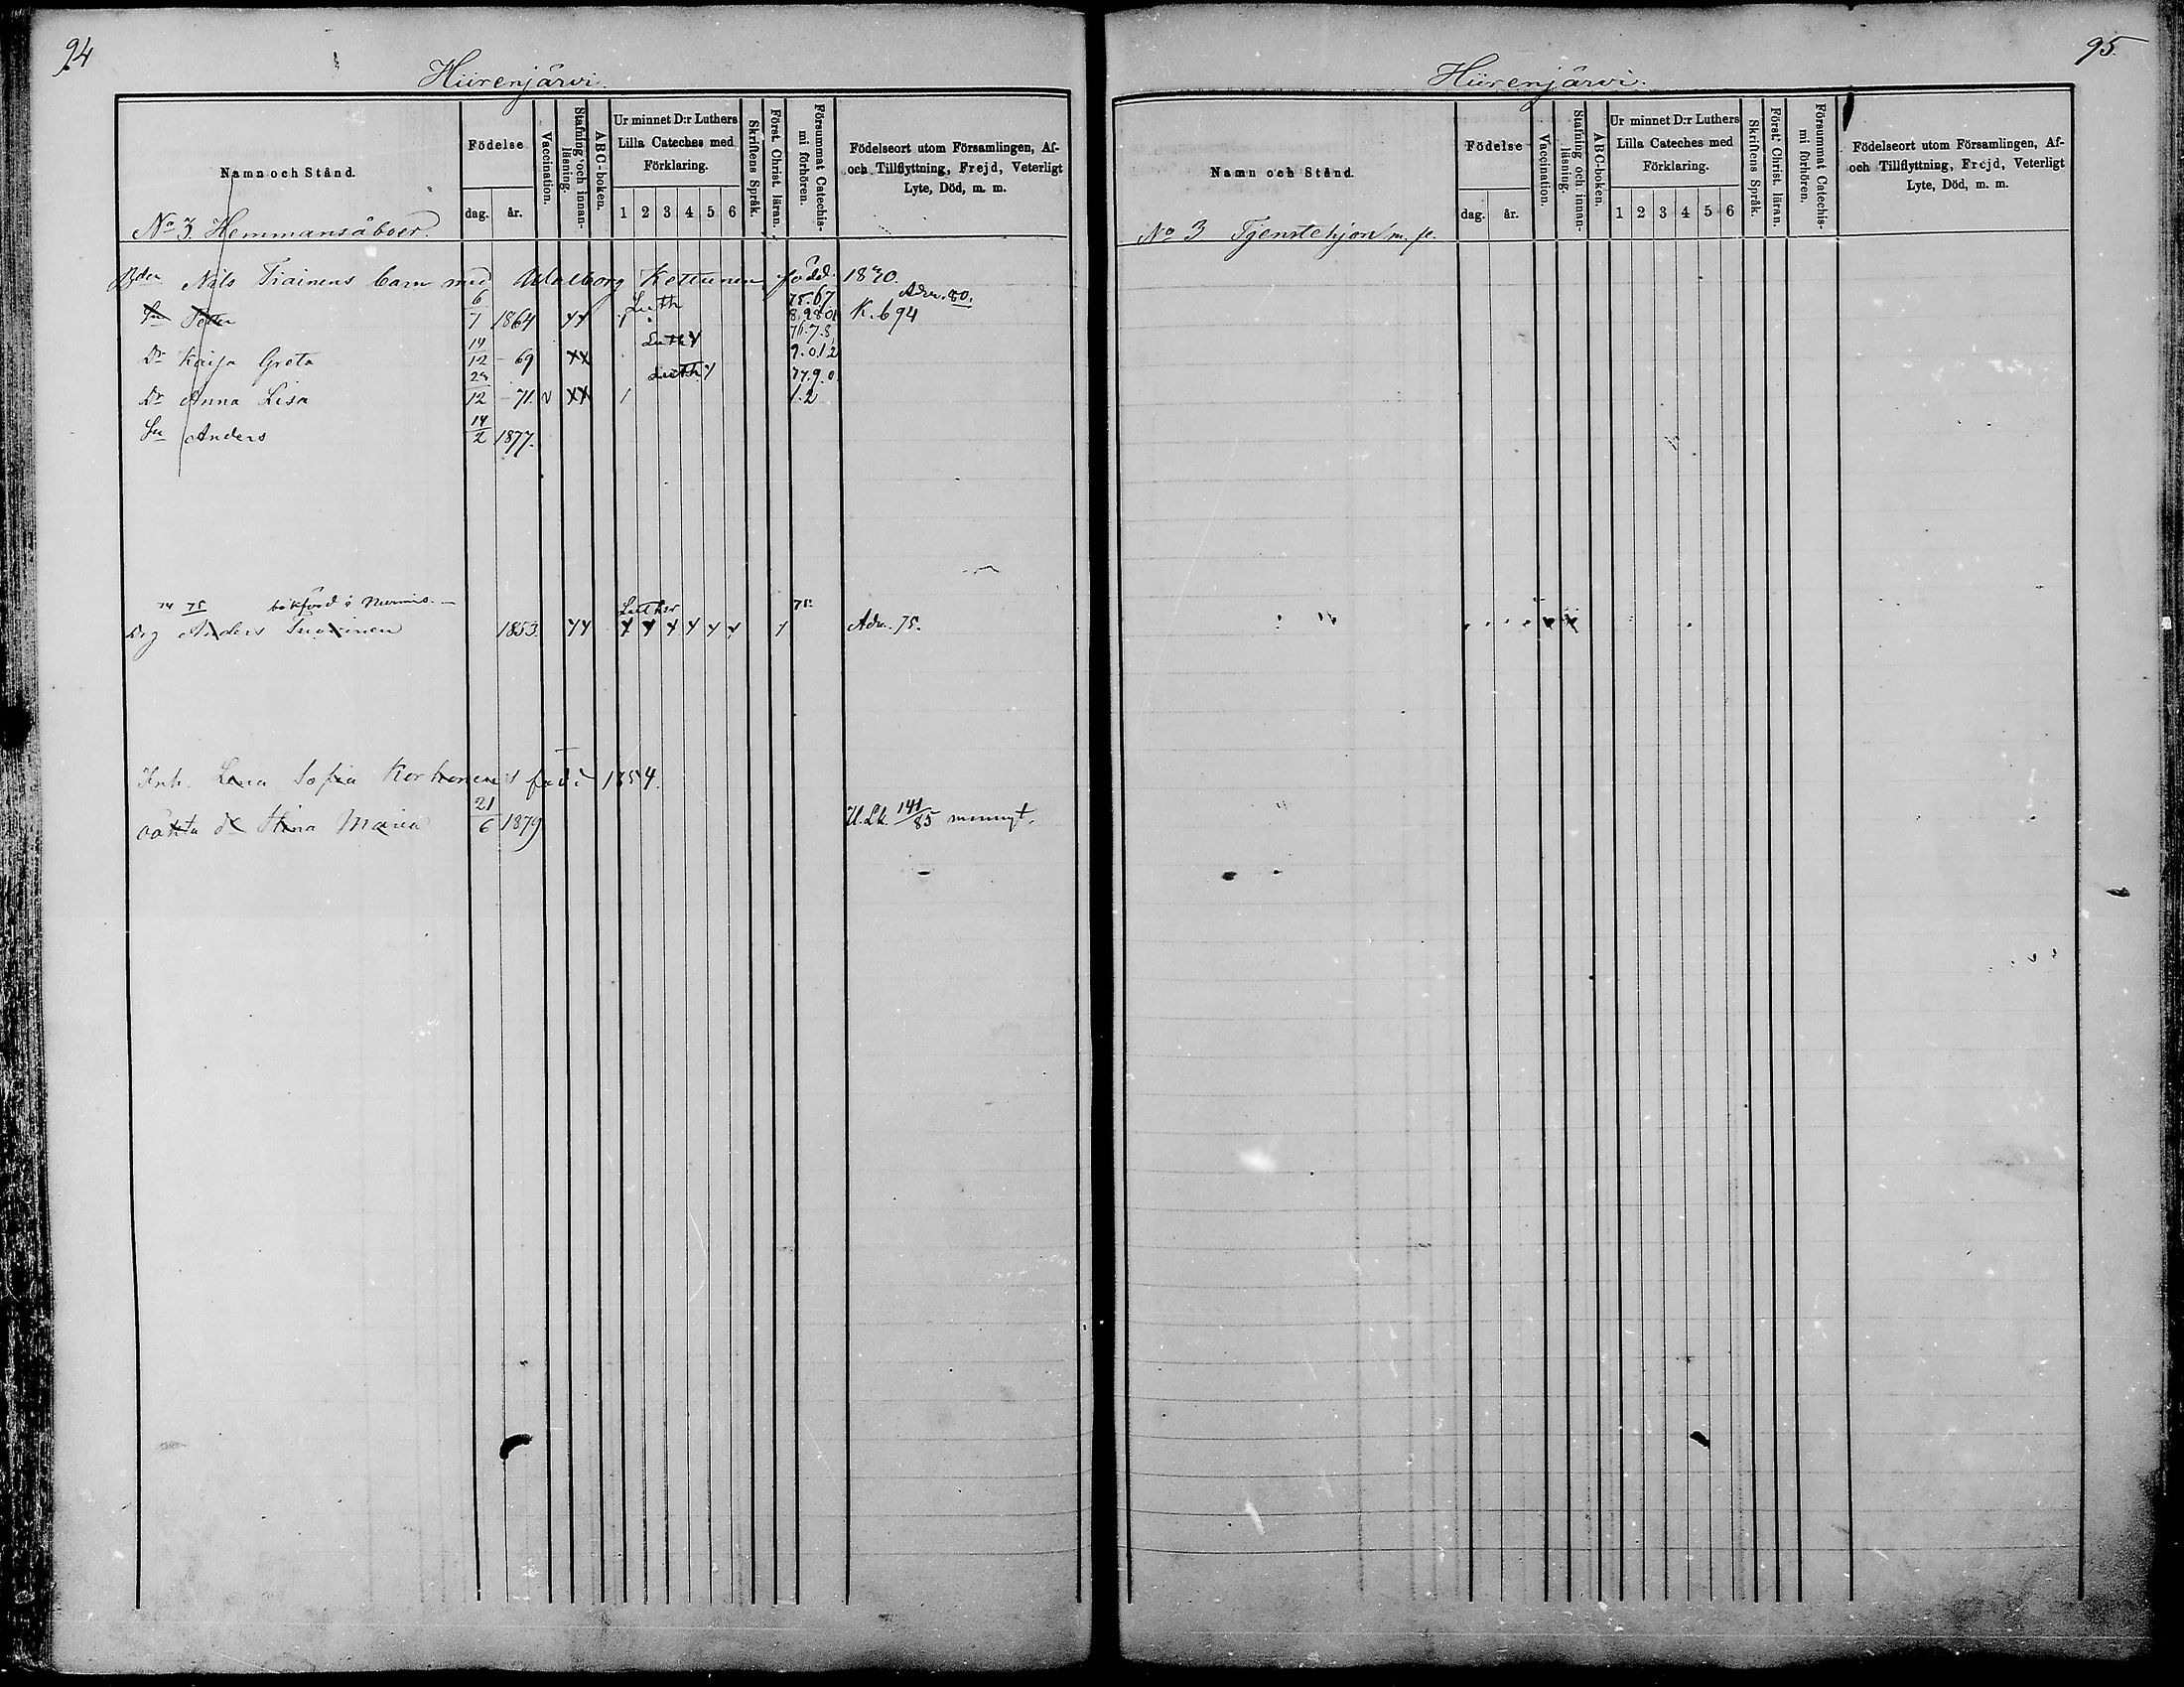 94
Hiirenjärvi.
Namn och Stånd.
Födelse
dag. år.
Vaccination.
Stafning och innan-
läsning.
ABC-boken.
Ur minnet D:r Luthers
Lilla Cateches med
Förklaring.
1 2 3 4 5 6
Skriftens Språk.
Först. Christ. läran.
Försummat Catechis-
mi förhören.
Födelseort utom Församlingen, Af-
och Tillflyttning, Frejd, Veterligt
Lyte, Död, m. m.
No 3. Hemmansåboer.
Nils Tiainens barn med Walborg Kettunen, född 1840.
Sn Petter 6/7 1864 Luth 75.67 Adm. 80. K. 694
Dr Kaisa Greta 14/12 - 69 XX Luth 76.7.8 9.0.1.2
Dr Anna Lisa 12 - 71. v XX 1 Luth 77.9.0 1.2
Sn Anders 14/2 1877.
74 75 bokförd i Nurmis. —
Drg Anders 1853. Luther 75. Adm. 75.
Inh. Lena Sofia Korhonens född 1854.
oäkta dr Stina Maria 21/6 1879 U.Lk. 141/85
95.
Hiirenjärvi.
Namn och Stånd.
Födelse
dag. år.
Vaccination.
Stafning och innan-
läsning.
ABC-boken.
Ur minnet D:r Luthers
Lilla Cateches med
Förklaring.
1 2 3 4 5 6
Skriftens Språk.
Först. Christ. läran.
Försummat Catechis-
mi förhören.
Födelseort utom Församlingen, Af-
och Tillflyttning, Frejd, Veterligt
Lyte, Död, m. m.
No 3 Tjenstehjon m. fl.